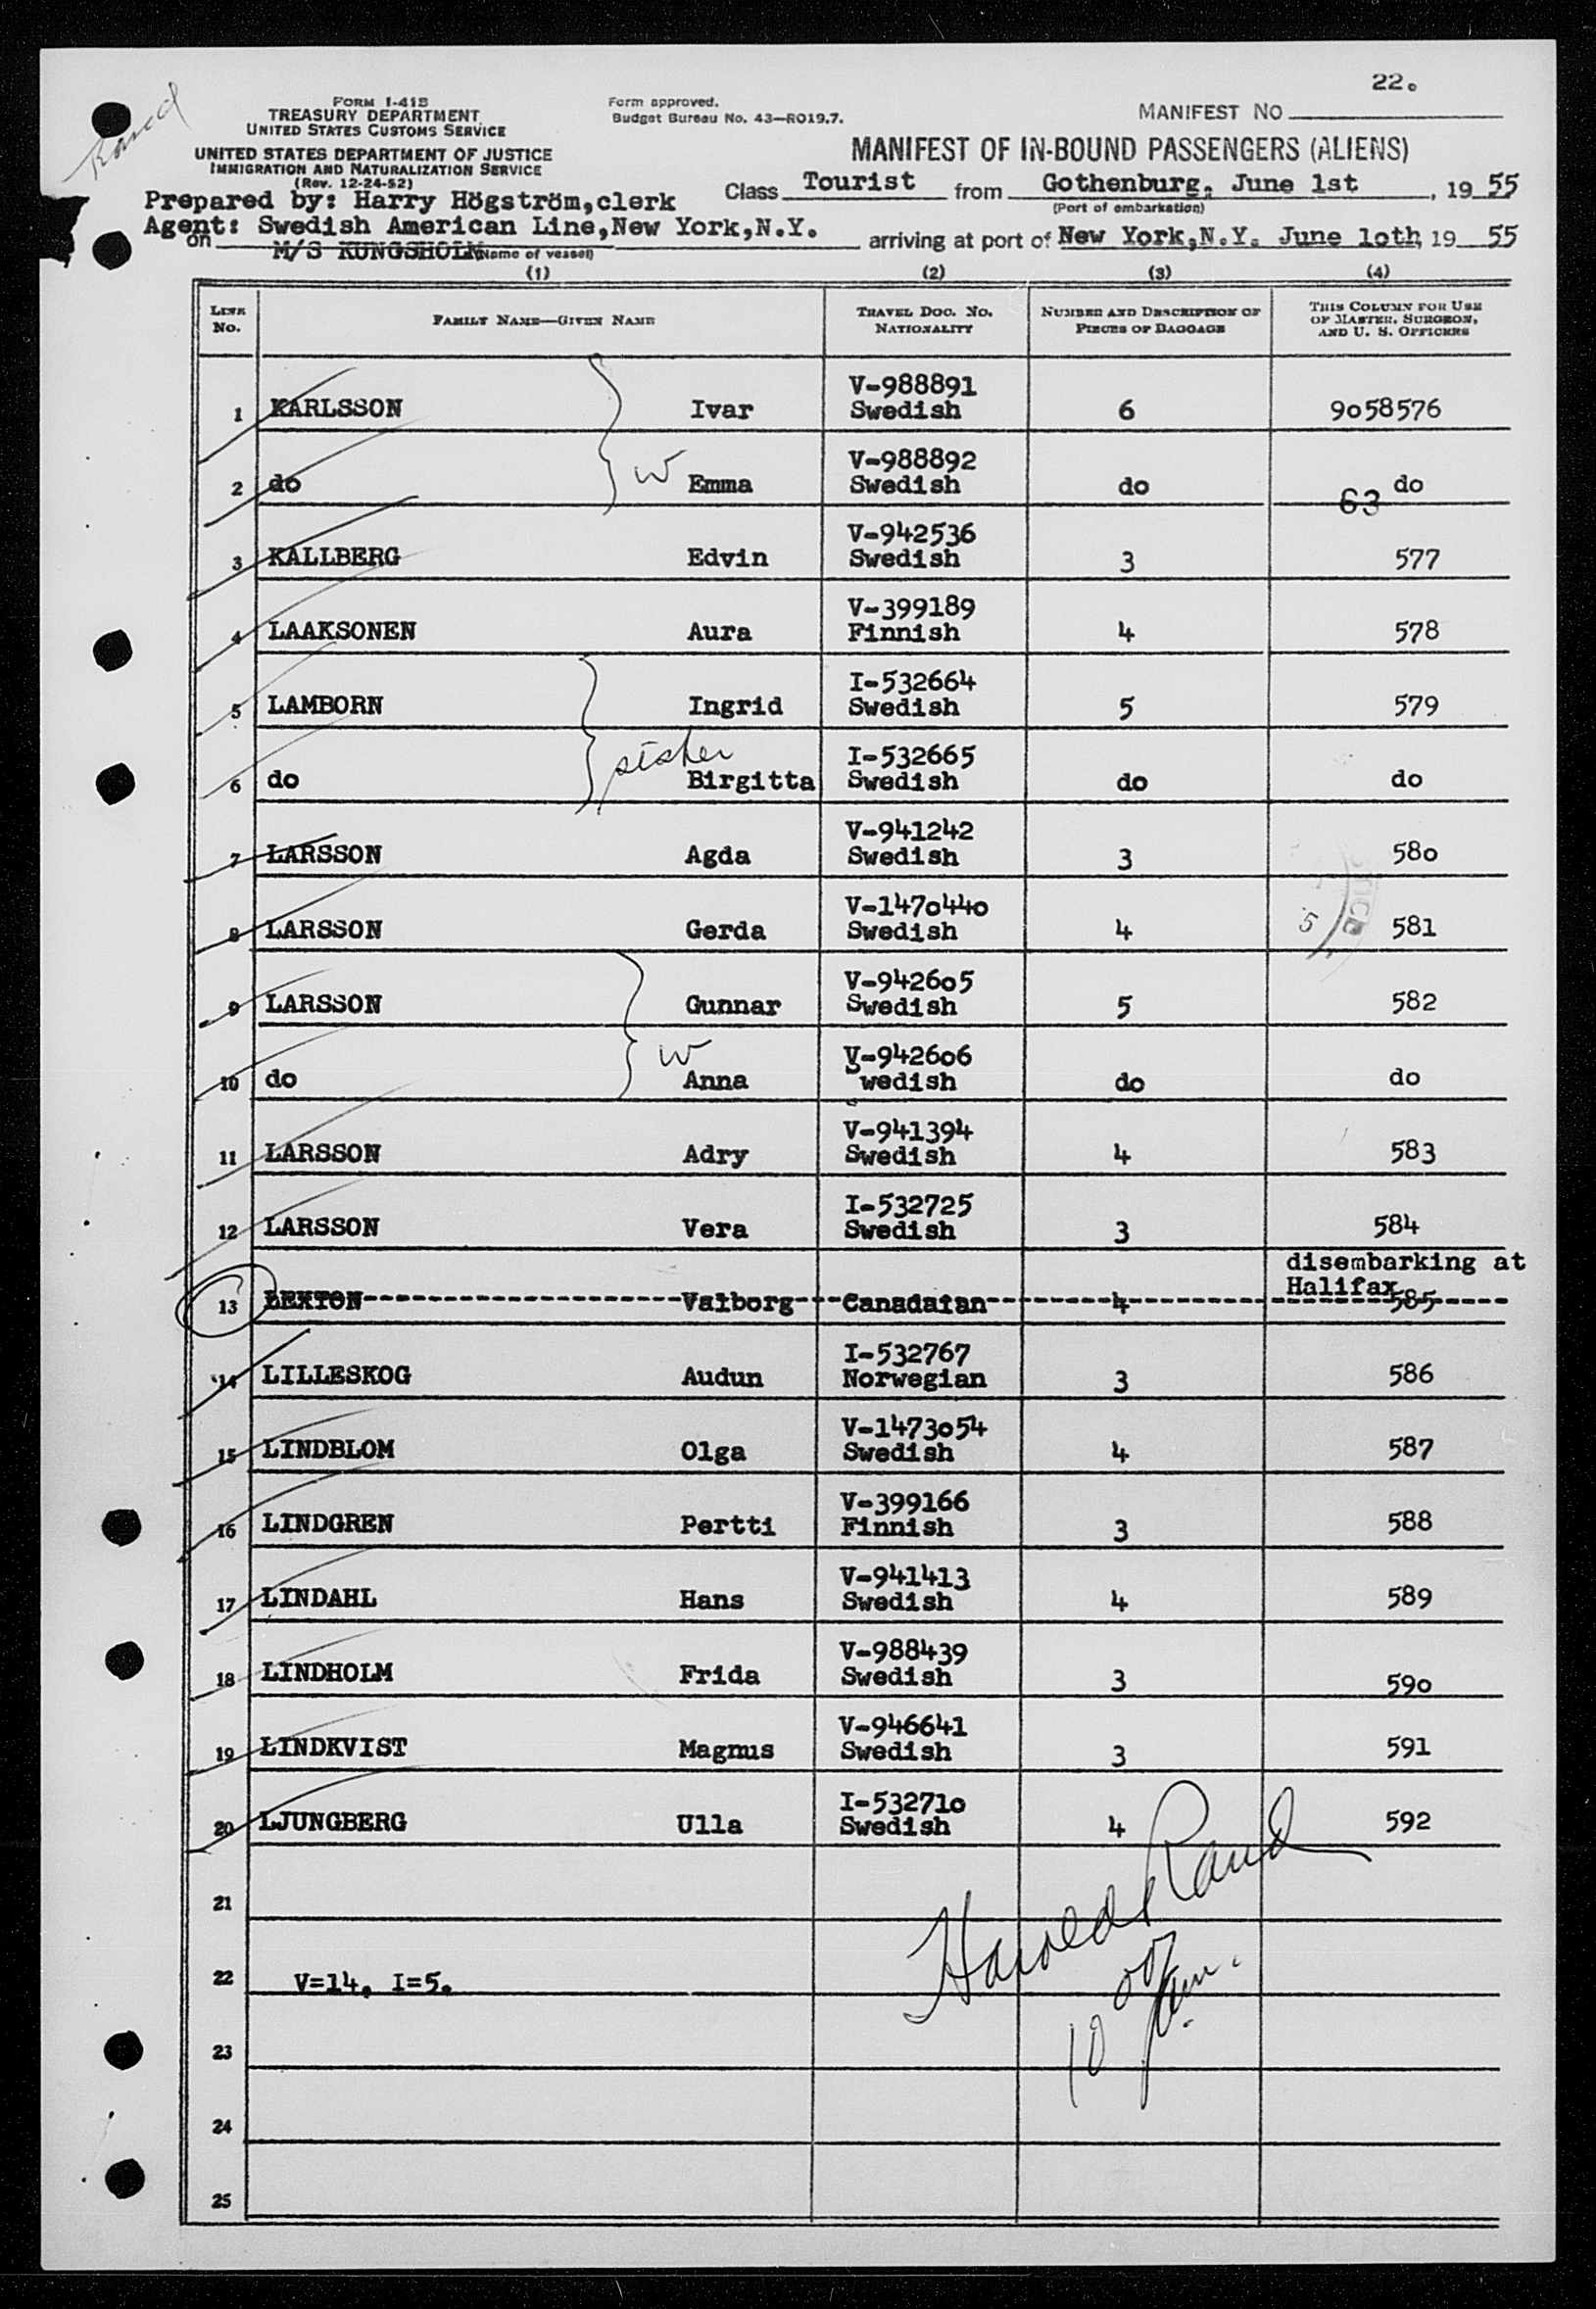 22.
Rand
FORM I-418
TREASURY DEPARTMENT
UNITED STATES CUSTOMS SERVICE
UNITED STATES DEPARTMENT OF JUSTICE
IMMIGRATION AND NATURALIZATION SERVICE
(Rev. 12-24-52)
Form approved.
Budget Bureau No. 43—RO19.7.
MANIFEST NO
MANIFEST OF IN-BOUND PASSENGERS (ALIENS)
Prepared by: Harry Högström,clerk
Class Tourist from Gothenburg, June 1st, 19 55
(Port of embarkation)
Agent: Swedish American Line,New York,N.Y.
on M/S KUNGSHOLM (Name of vessel) arriving at port of New York,N.Y. June 1oth 19 55
(1) (2) (3) (4)
LINE No. FAMILY NAME—GIVEN NAME TRAVEL DOC. NO. NATIONALITY NUMBER AND DESCRIPTION OF PIECES OF BAGGAGE THIS COLUMN FOR USE OF MASTER, SURGEON, AND U. S. OFFICERS
V-988891
1 KARLSSON Ivar Swedish 6 9o58576
V-988892
2 do W Emma Swedish do do
63
V-942536
3 KALLBERG Edvin Swedish 3 577
V-399189
4 LAAKSONEN Aura Finnish 4 578
I-532664
5 LAMBORN Ingrid Swedish 5 579
I-532665
6 do sister Birgitta Swedish do do
V-941242
7 LARSSON Agda Swedish 3 58o
V-147o44o
8 LARSSON Gerda Swedish 4 581
V-9426o5
9 LARSSON Gunnar Swedish 5 582
V-9426o6
10 do W Anna Swedish do do
V-941394
11 LARSSON Adry Swedish 4 583
I-532725
12 LARSSON Vera Swedish 3 584
disembarking at
Halifax
13 LEXTON Valborg Canadaian 4 585
I-532767
14 LILLESKOG Audun Norwegian 3 586
V-1473o54
15 LINDBLOM Olga Swedish 4 587
V-399166
16 LINDGREN Pertti Finnish 3 588
V-941413
17 LINDAHL Hans Swedish 4 589
V-988439
18 LINDHOLM Frida Swedish 3 59o
V-946641
19 LINDKVIST Magnus Swedish 3 591
I-53271o
20 LJUNGBERG Ulla Swedish 4 592
Harold Rand
21
22 V=14, I=5.
23
24
25